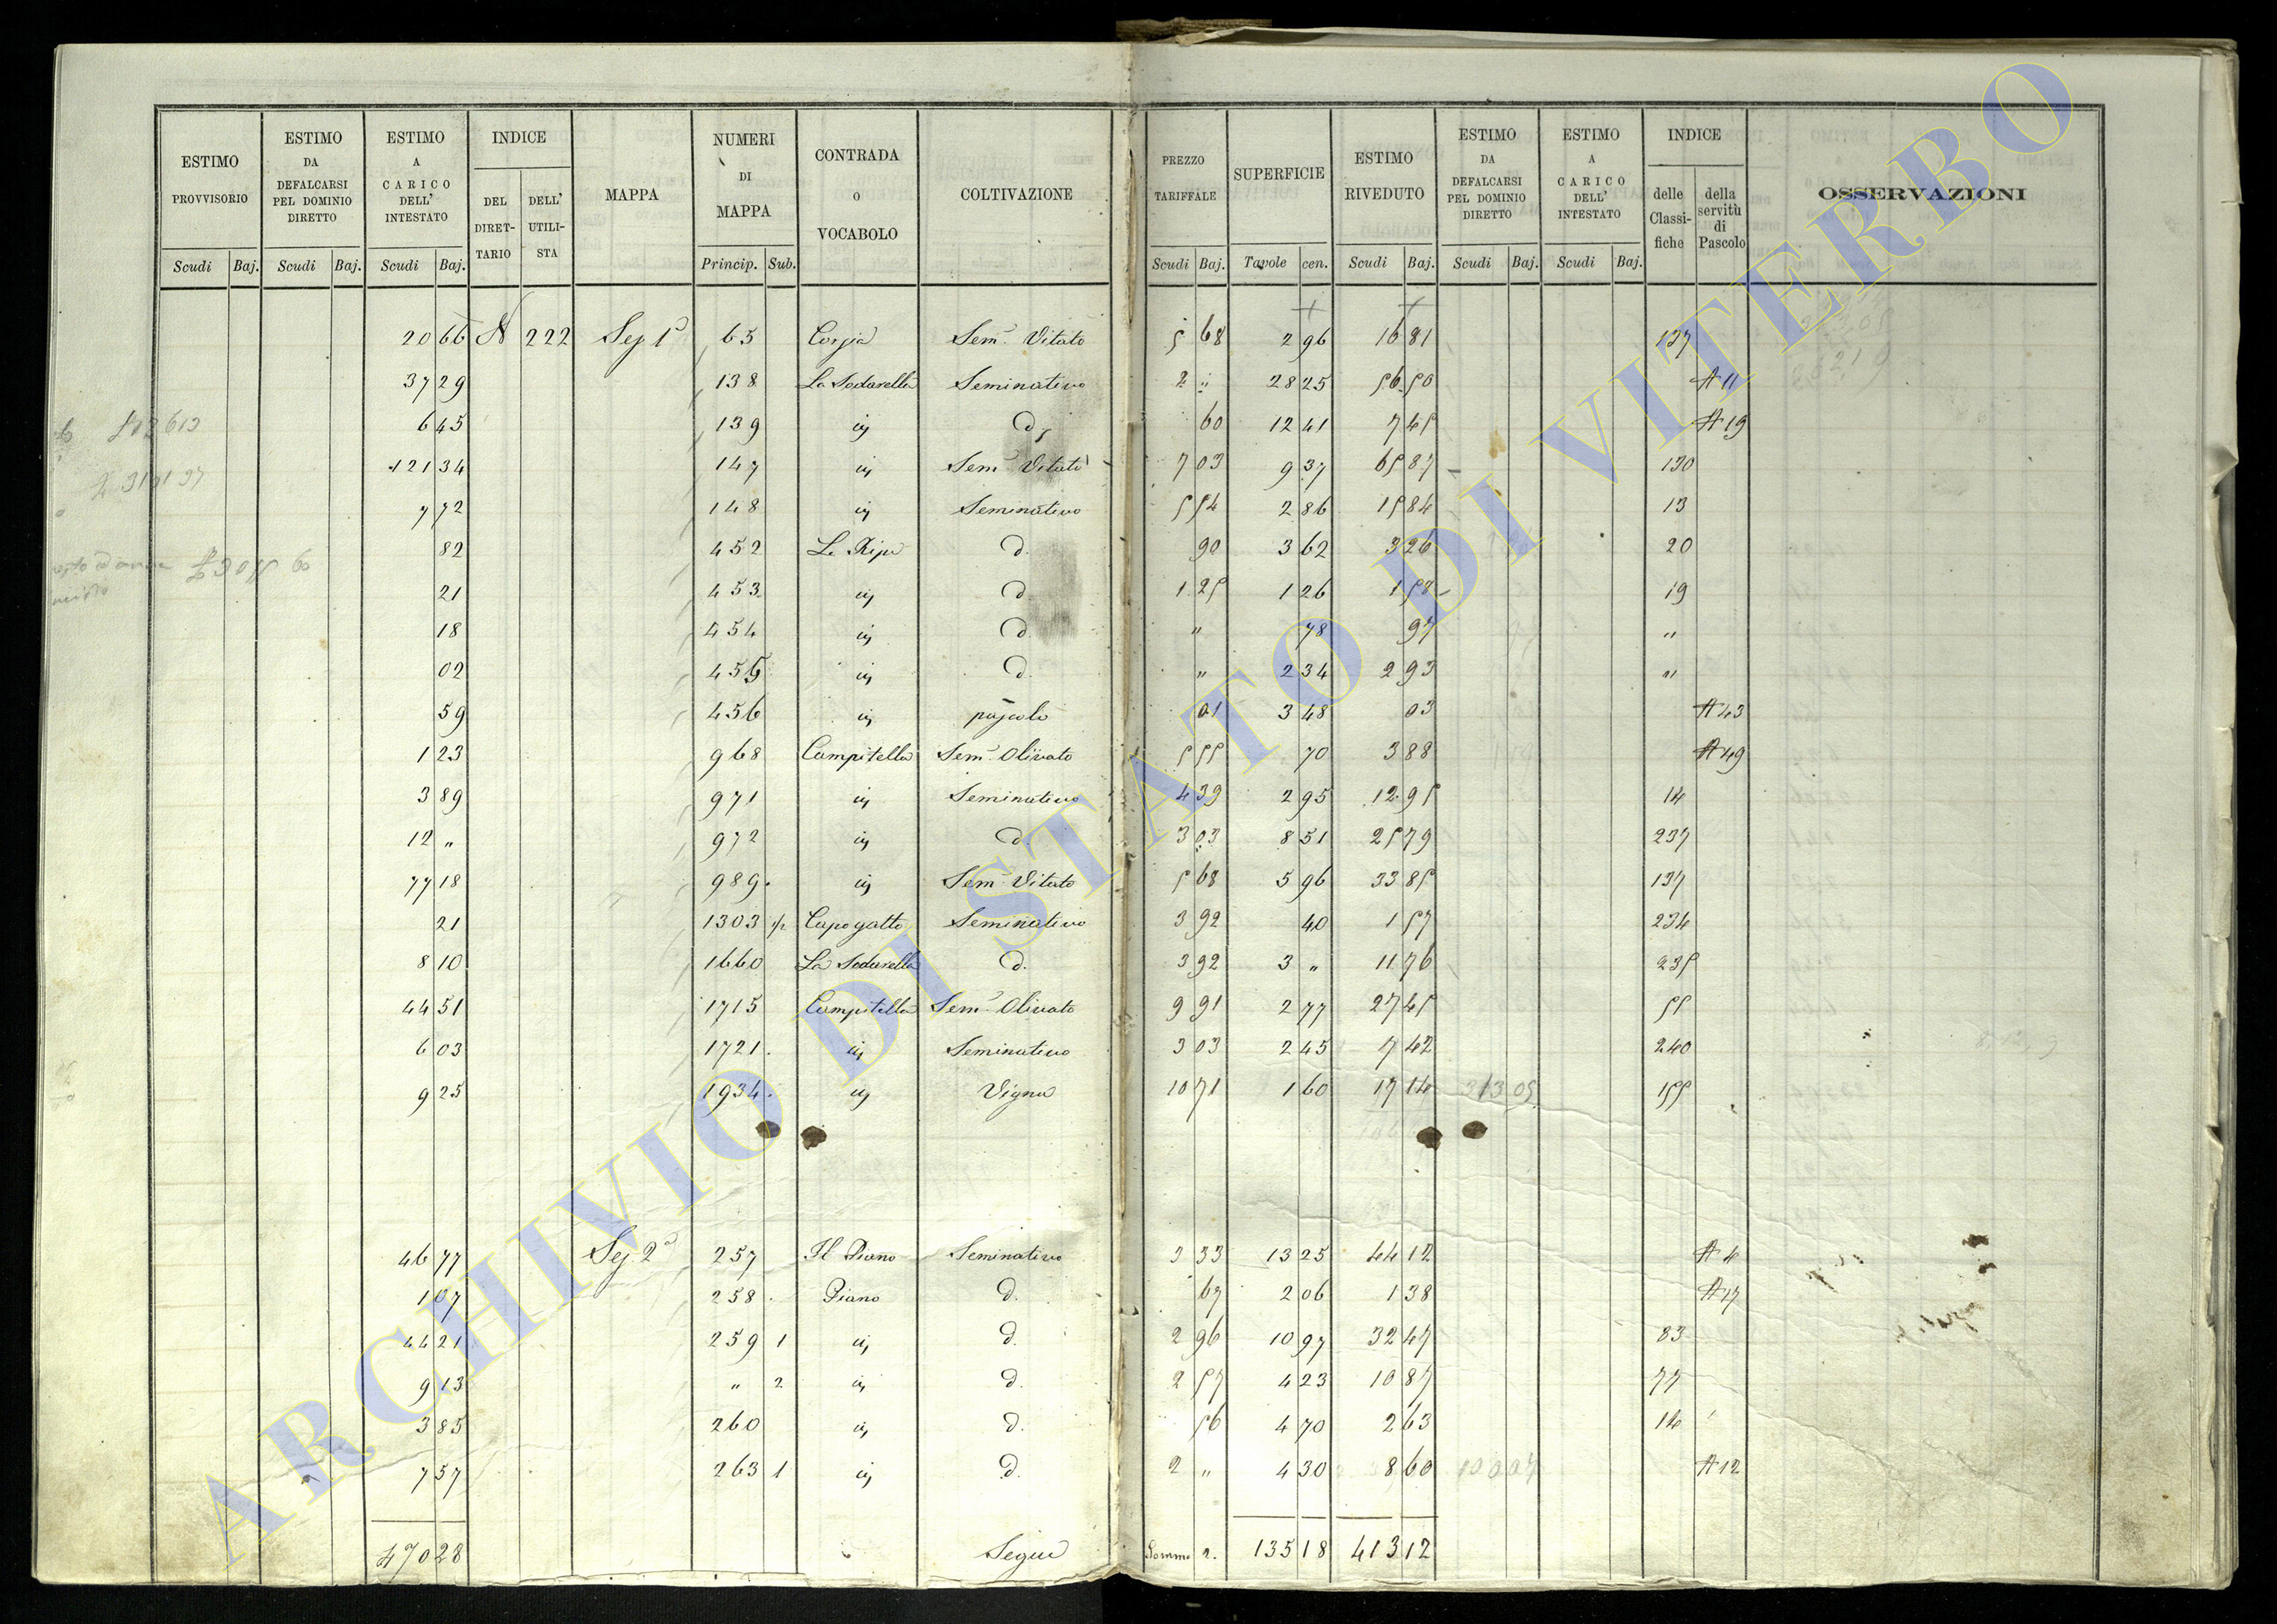 ESTIMO PROVVISORIO Scudi Baj.
ESTIMO DA DEFALCARSI PEL DOMINIO DIRETTO Scudi Baj.
ESTIMO A CARICO DELL' INTESTATO Scudi Baj.
INDICE DEL DIRETTARIO DELL' UTILISTA
MAPPA
NUMERI DI MAPPA Princip. Sub.
CONTRADA o VOCABOLO
COLTIVAZIONE
PREZZO TARIFFALE Scudi Baj.
SUPERFICIE Tavole cen.
ESTIMO RIVEDUTO Scudi Baj.
ESTIMO DA DEFALCARSI PEL DOMINIO DIRETTO Scudi Baj.
ESTIMO A CARICO DELL' INTESTATO Scudi Baj.
INDICE delle Classifiche della servitù di Pascolo
OSSERVAZIONI
20 66 222 Sez 1ª 65 Sem.º Vitato 5 68 2 96 16 81 137
37 29 138 La Sodarella Seminativo 2 " 28 25 56 50 A 11
6 45 139 id d. 60 12 41 7 45 A 19
121 34 147 id Sem.º Vitato 7 03 9 37 65 87 130
7 72 148 id Seminativo 5 54 2 86 15 84 13
82 452 Le Ripe d. 90 3 62 3 26 20
21 453 id d. 1 25 1 26 1 58 19
18 454 id d. " 78 97 "
02 455 id d. " 2 34 2 93 "
59 456 id pascolo 01 3 48 03 A 43
1 23 968 Campitella Sem.º Olivato 5 55 70 3 88 A 49
3 89 971 id Seminativo 4 39 2 95 12 95 14
12 " 972 id d. 3 03 8 51 25 79 237
77 18 989 id Sem.º Vitato 5 68 5 96 33 85 137
21 1303 Capogatto Seminativo 3 92 40 1 57 234
8 10 1660 La Sodarella d. 3 92 3 " 11 76 235
44 51 1715 Campitella Sem.º Olivato 9 91 2 77 27 45 55
6 03 1721 id Seminativo 3 03 2 45 7 42 240
9 25 1934 id Vigna 10 71 1 60 17 14 313 05 155
46 77 Sez 2ª 257 Il Piano Seminativo 3 33 13 25 44 12 A 4
1 07 258 Piano d. 67 2 06 1 38 A 17
44 21 259 1 id d. 2 96 10 97 32 47 83
9 13 " 2 id d. 2 57 4 23 10 87 77
3 85 260 id d. 56 4 70 2 63 14
7 57 263 1 id d. 2 " 4 30 8 60 100 07 A 12
470 28 Segue Somma 135 18 413 12
ARCHIVIO DI STATO DI VITERBO